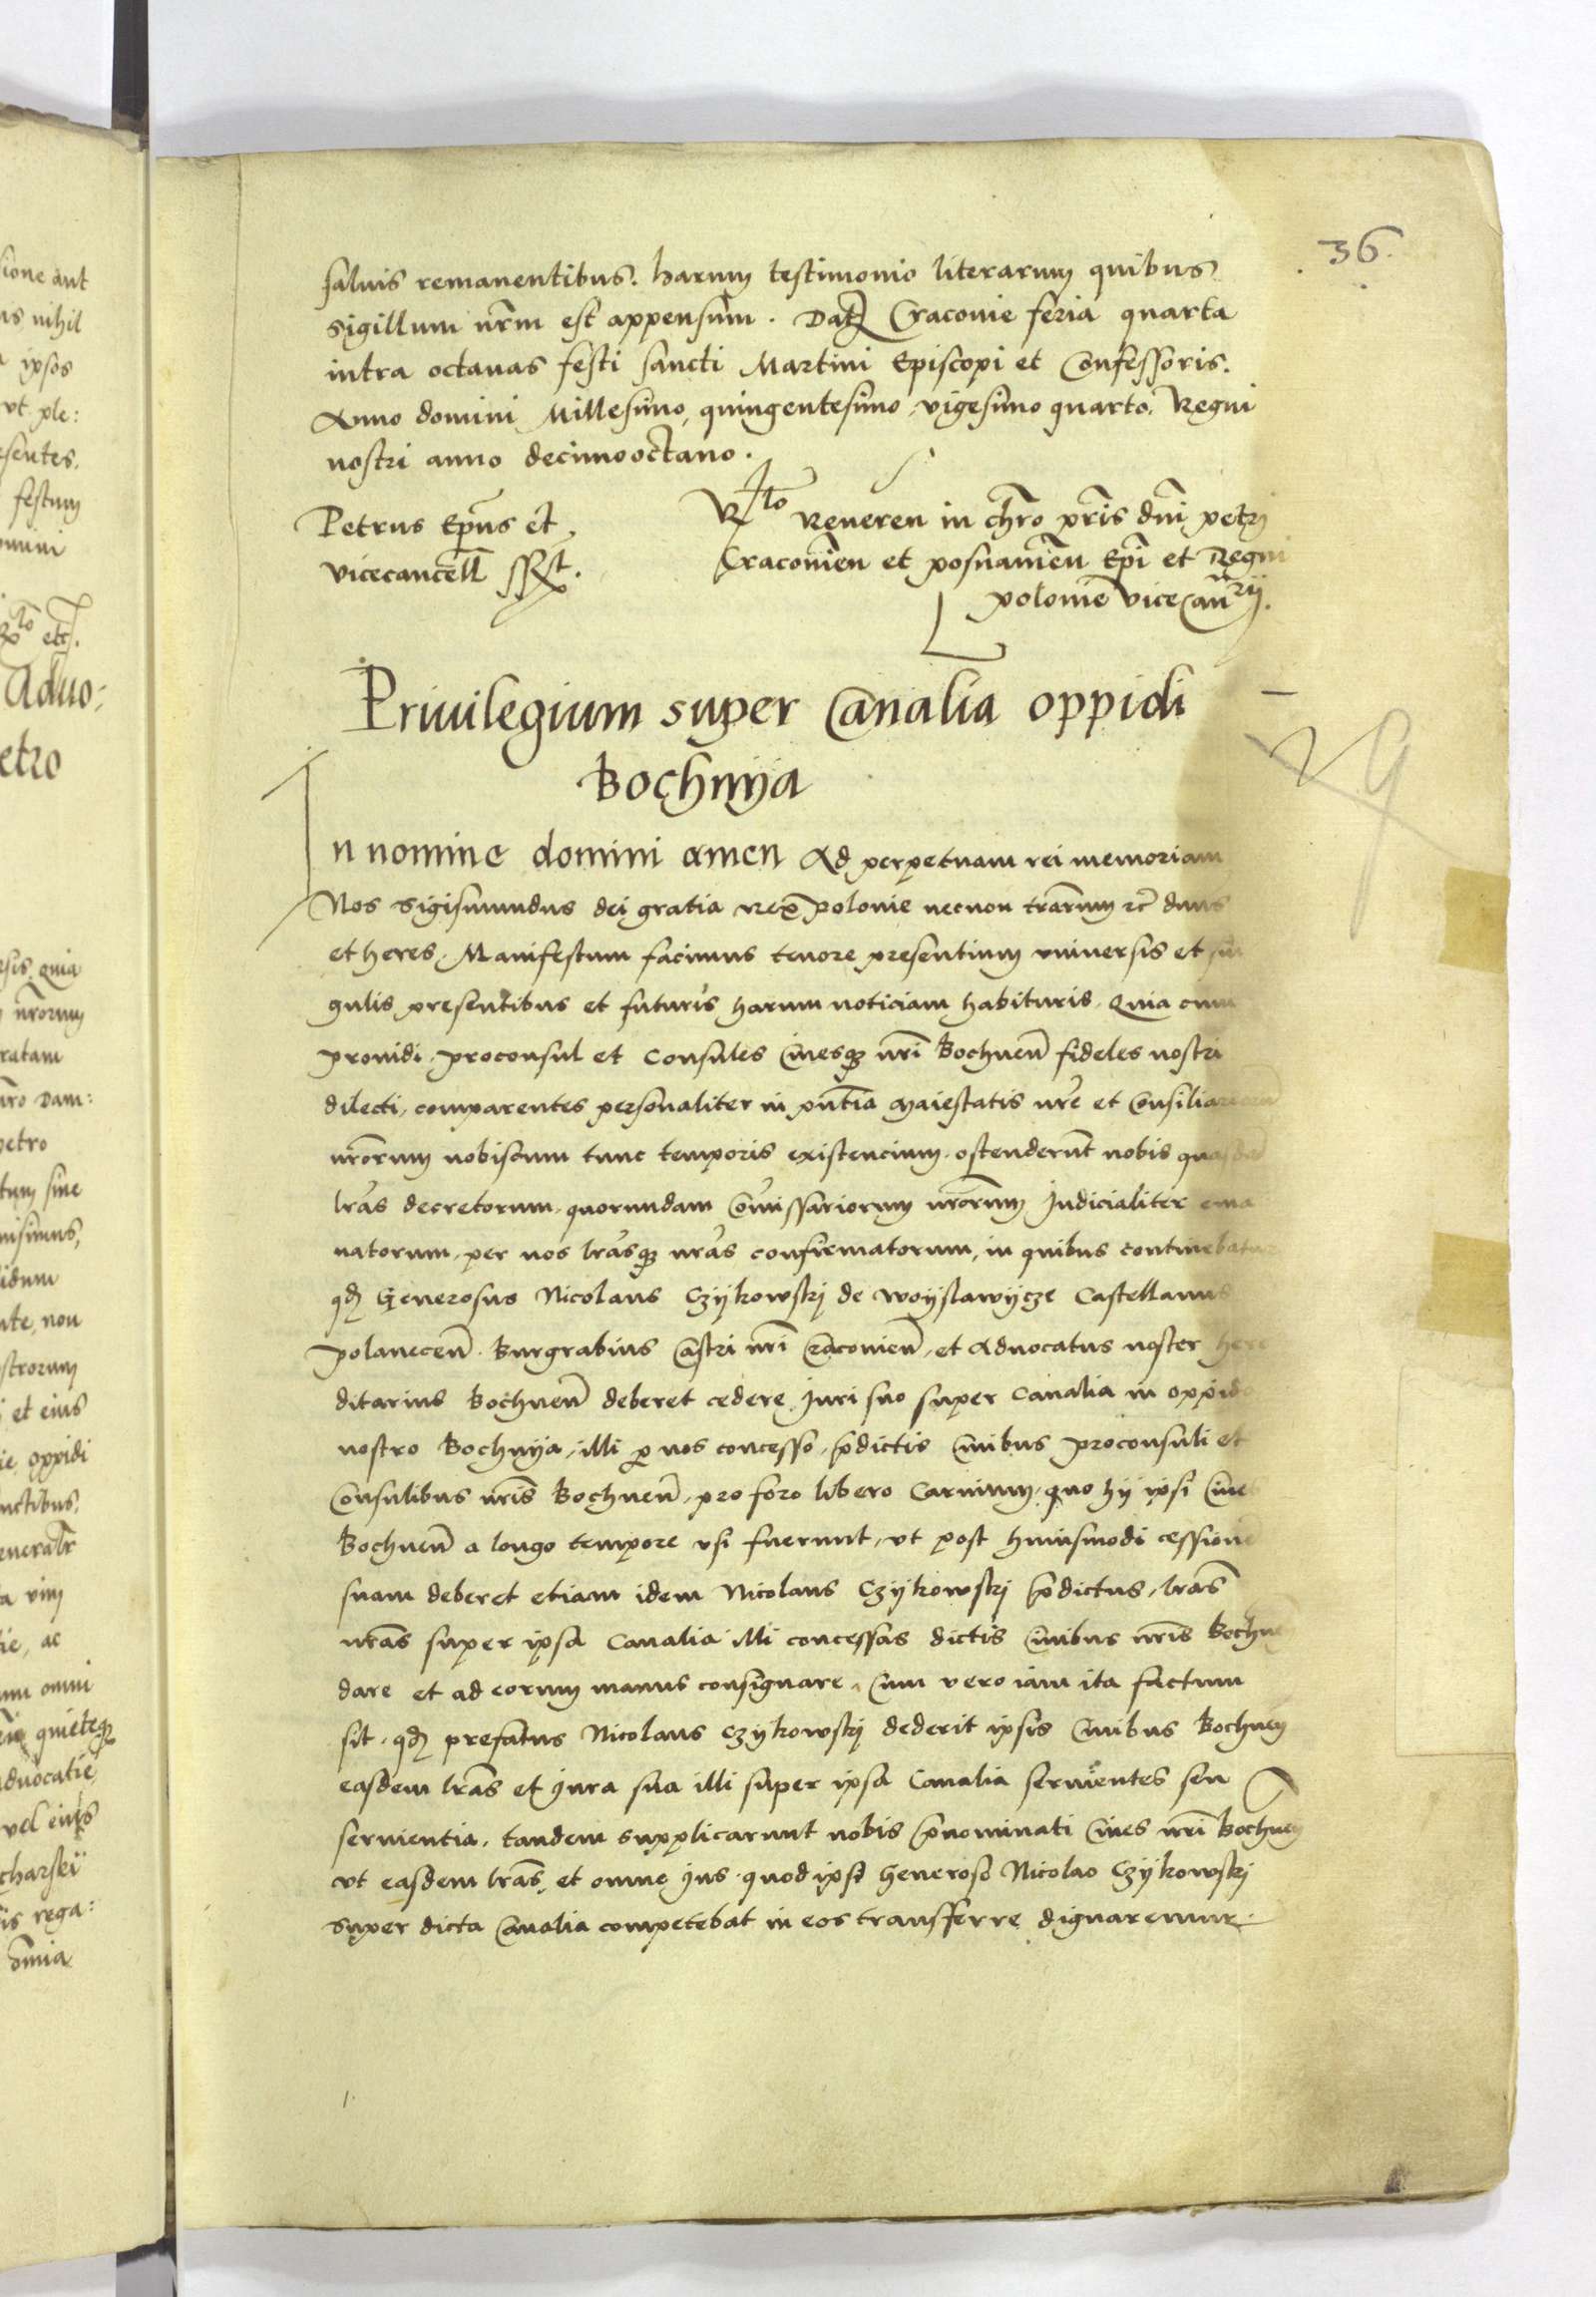 36.
saluis remanentibus. harum testimonio literarum quibus
sigillum nrm̄ est appensum. Dat̄ Cracouie feria quarta
intra octauas festi sancti Martini Episcopi et Confessoris.
Anno domini Millesimo, quingentesimo, vigesimo quarto. Regni
nostri anno decimooctauo.
Petrus Ep̄us et
vicecancell̄ sst.
Rlo Reueren in chr̄o pr̄is dnī petrj
Cracouien̄ et posnanien̄ Epī et Regni
polonie vicecan̄rij.
Priuilegium super Canalia oppidi
Bochnya
In nomine domini amen Ad perpetuam rei memoriam
Nos Sigismundus dei gratia Rex polonie necnon trārum rc̄ dnus
et heres. Manifestum facimus tenore presentium vniuersis et sin
gulis presentibus et futuris harum noticiam habituris. Quia cum
prouidi, proconsul et Consules Ciuesqꝫ nrī Bochnen̄ fideles nostri
dilecti, comparentes personaliter in pn̄tia Maiestatis nrē et Consiliariorum
nrōrum nobiscum tunc temporis existencium. ostenderūt nobis quasdam
lrās decretorum, quorundam Com̄issariorum nrōrum Judicialiter ema
natorum, per nos lrāsqꝫ nrās confirmatorum, in quibus continebatur
qđ Generosus Nicolaus Czykowskj de woyslawycze Castellanus
polanecen̄. Burgrabius Castri nrī Cracouien̄, et Aduocatus noster here
ditarius Bochnen̄ deberet cedere Juri suo super Canalia in oppido
nostro Bochnya, illi ꝑ nos concesso, p̄dictis Ciuibus proconsuli et
Consulibus nrīs Bochnen̄, pro foro libero Carnium, quo hÿ ipsi Ciues
Bochnen̄ a longo tempore vsi fuerunt, vt post huiusmodi cessione
suam deberet etiam idem Nicolaus Czykowskj p̄dictus, lrās
nrās super ipsa Canalia illi concessas dictis Ciuibus nrīs Bochnen̄
dare et ad eorum manus consignare. Cum vero iam ita factum
sit, qđ prefatus Nicolaus Czykowskj dederit ipsis Ciuibus Bochnen̄
easdem lrās et Jura sua illi super ipsa Canalia seruientes seu
seruientia, tandem supplicarunt nobis p̄nominati Ciues nrī Bochnen̄
vt easdem lrās, et omne Jus quod ipsi Generoso Nicolao Czykowskj
super dicta Canalia competebat in eos transferre dignaremur.